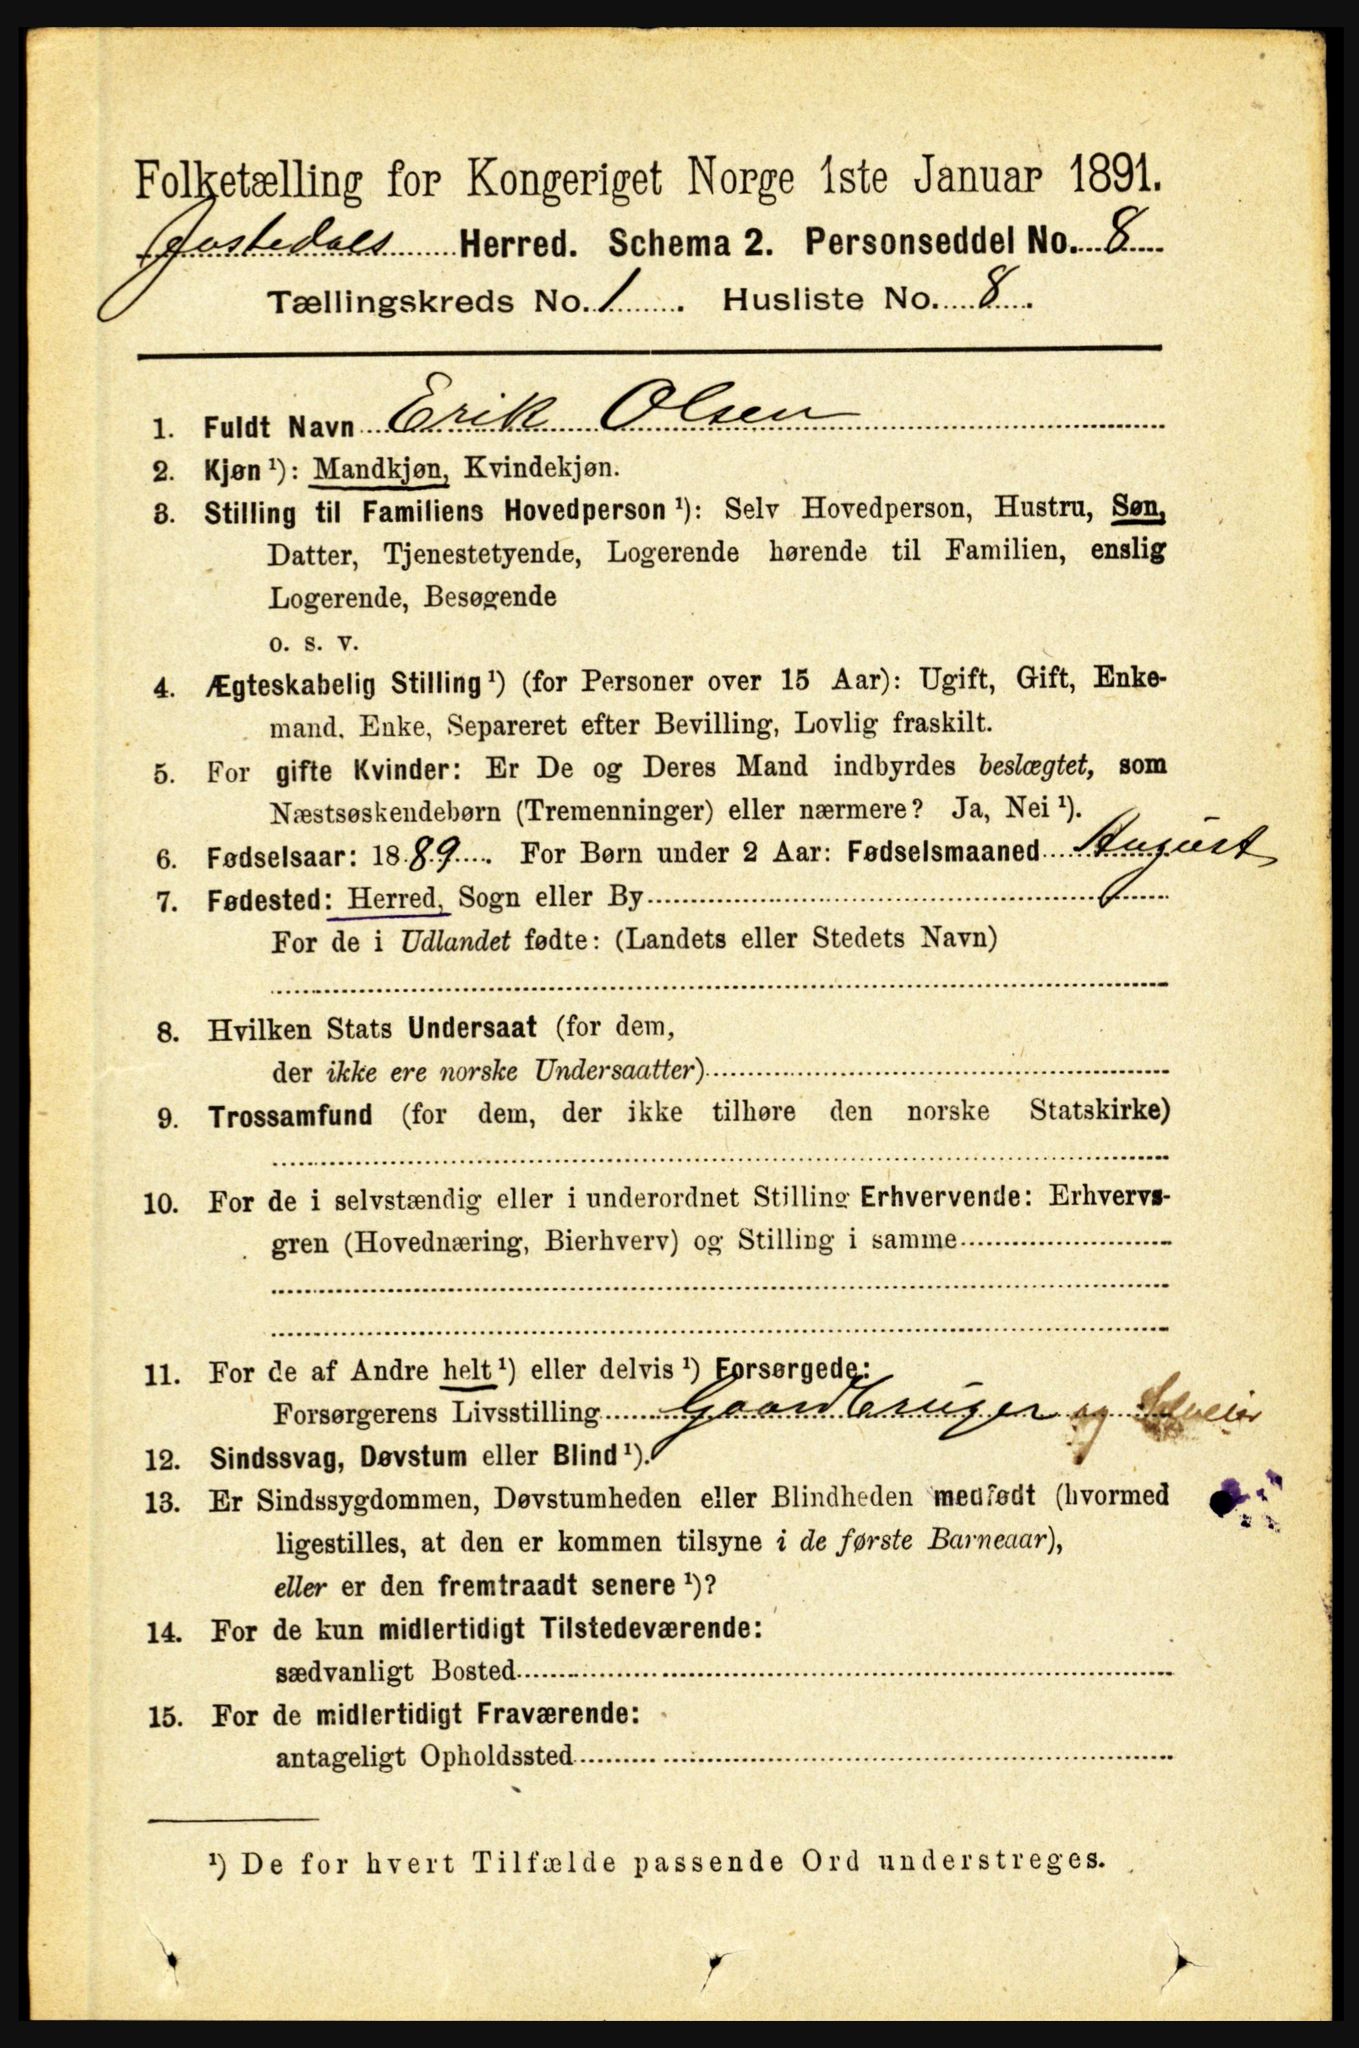 Folketælling for Kongeriget Norge 1ste Januar 1891.
Jostedals Herred. Schema 2. Personseddel No. 8
Tællingskreds No. 1. Husliste No. 8.
1. Fuldt Navn Erik Olsen
2. Kjøn ¹): Mandkjøn, Kvindekjøn.
3. Stilling til Familiens Hovedperson ¹): Selv Hovedperson, Hustru, Søn,
Datter, Tjenestetyende, Logerende hørende til Familien, enslig
Logerende, Besøgende
o. s. v.
4. Ægteskabelig Stilling ¹) (for Personer over 15 Aar): Ugift, Gift, Enke-
mand, Enke, Separeret efter Bevilling, Lovlig fraskilt.
5. For gifte Kvinder: Er De og Deres Mand indbyrdes beslægtet, som
Næstsøskendebørn (Tremenninger) eller nærmere? Ja, Nei ¹).
6. Fødselsaar: 1889. For Børn under 2 Aar: Fødselsmaaned August
7. Fødested: Herred, Sogn eller By
For de i Udlandet fødte: (Landets eller Stedets Navn)
8. Hvilken Stats Undersaat (for dem,
der ikke ere norske Undersaatter)
9. Trossamfund (for dem, der ikke tilhøre den norske Statskirke)
10. For de i selvstændig eller i underordnet Stilling Erhvervende: Erhvervs-
gren (Hovednæring, Bierhverv) og Stilling i samme
11. For de af Andre helt ¹) eller delvis ¹) Forsørgede:
Forsørgerens Livsstilling Gaardbruger og Selveier
12. Sindssvag, Døvstum eller Blind ¹).
13. Er Sindssygdommen, Døvstumheden eller Blindheden medfødt (hvormed
ligestilles, at den er kommen tilsyne i de første Barneaar),
eller er den fremtraadt senere ¹)?
14. For de kun midlertidigt Tilstedeværende:
sædvanligt Bosted
15. For de midlertidigt Fraværende:
antageligt Opholdssted
¹) De for hvert Tilfælde passende Ord understreges.